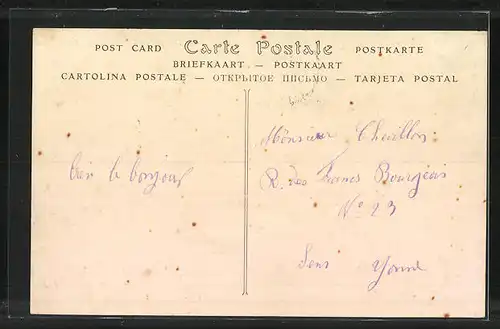 POST CARD Carte Postale POSTKARTE
BRIEFKAART. — POSTKAART
CARTOLINA POSTALE — ОТКРЫТОЕ ПИСЬМО — TARJETA POSTAL
le bonjour
Monsieur Chevillon
R. des Francs Bourgeois
Nº 23
Sens Yonne